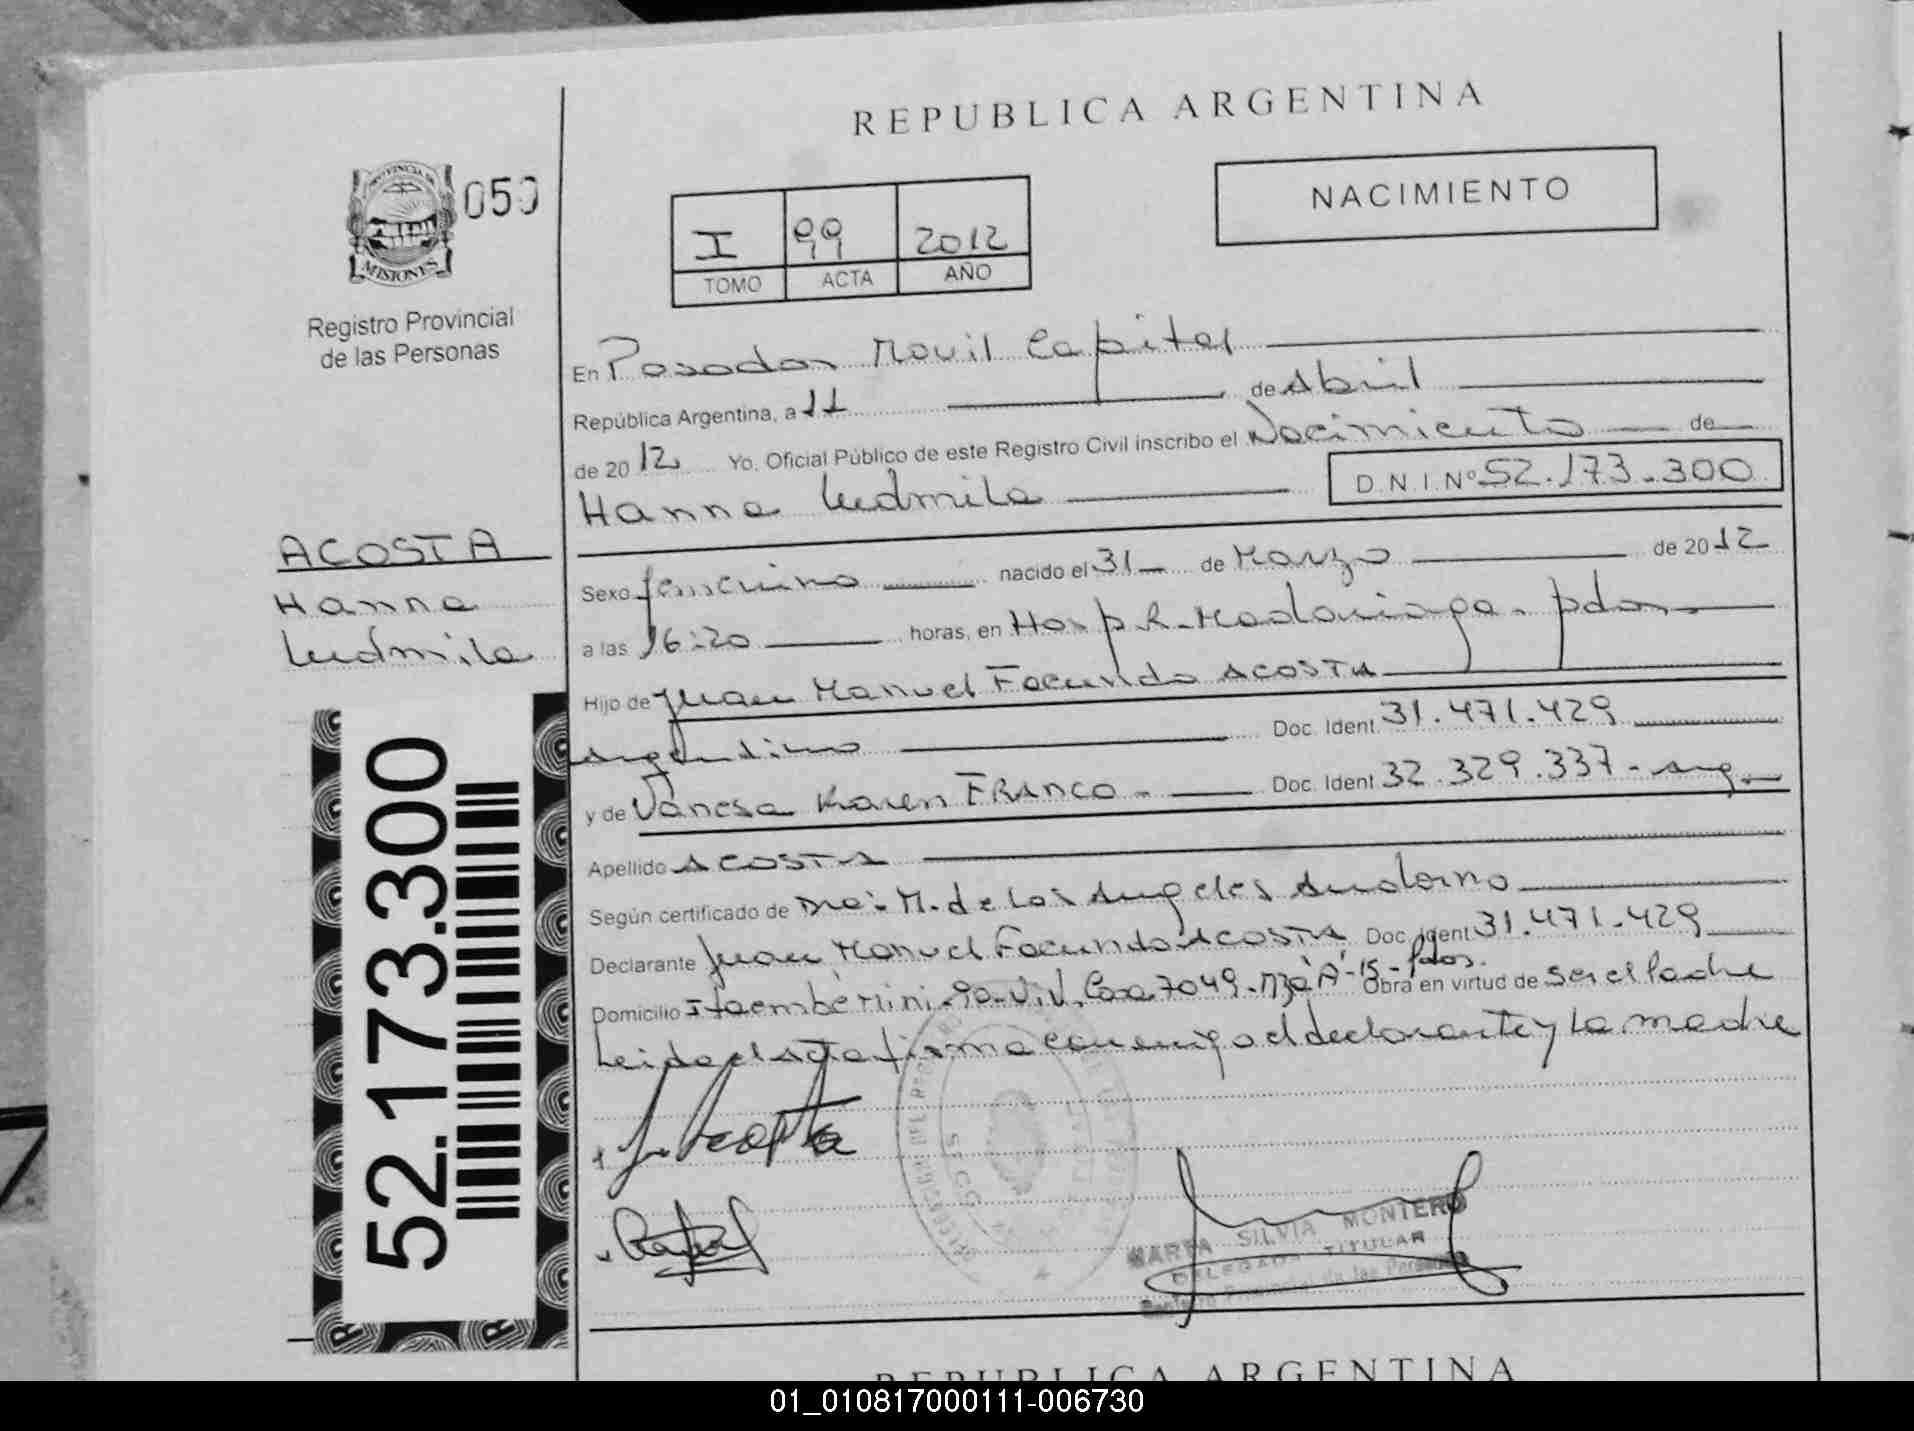 REPUBLICA ARGENTINA
NACIMIENTO
PROVINCIA DE
MISIONES
050
Registro Provincial
de las Personas
I 99 2012
TOMO ACTA AÑO
En Posadas Movil Capital
República Argentina, a 11 de Abril
de 2012 Yo, Oficial Público de este Registro Civil inscribo el Nacimiento de
Hanna Ludmila D.N.I.Nº 52.173.300
ACOSTA
Hanna
Ludmila
Sexo femenino nacido el 31 de Marzo de 2012
a las 16:20 horas, en Hosp R. Madariaga - pdas
Hijo de Juan Manuel Facundo ACOSTA
Argentino Doc. Ident 31.471.429
y de Vanesa Karen FRANCO - Doc. Ident 32.329.337 - arg.
Apellido ACOSTA
Según certificado de Dra: M. de los Angeles Andorno
Declarante Juan Manuel Facundo ACOSTA Doc. Ident 31.471.429
Domicilio Itaembé Mini. 90. Viv. Casa 7049. Mza "A"-15 - Pdas. Obra en virtud de ser el Padre
Leida el acta firma conmigo el declarante y la madre
52.173.300
J. Acosta
MARTA SILVIA MONTERO
DELEGADA TITULAR
Registro Provincial de las Personas
REPUBLICA ARGENTINA
01_010817000111-006730